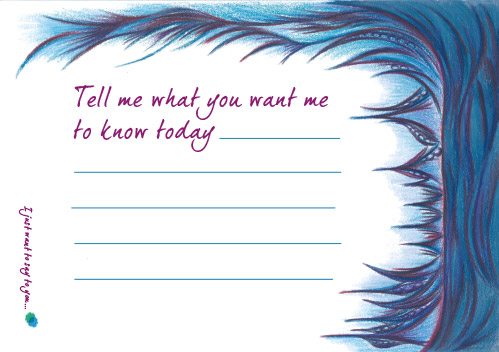 Tell me what you want me
to know today
I just want to say to you...